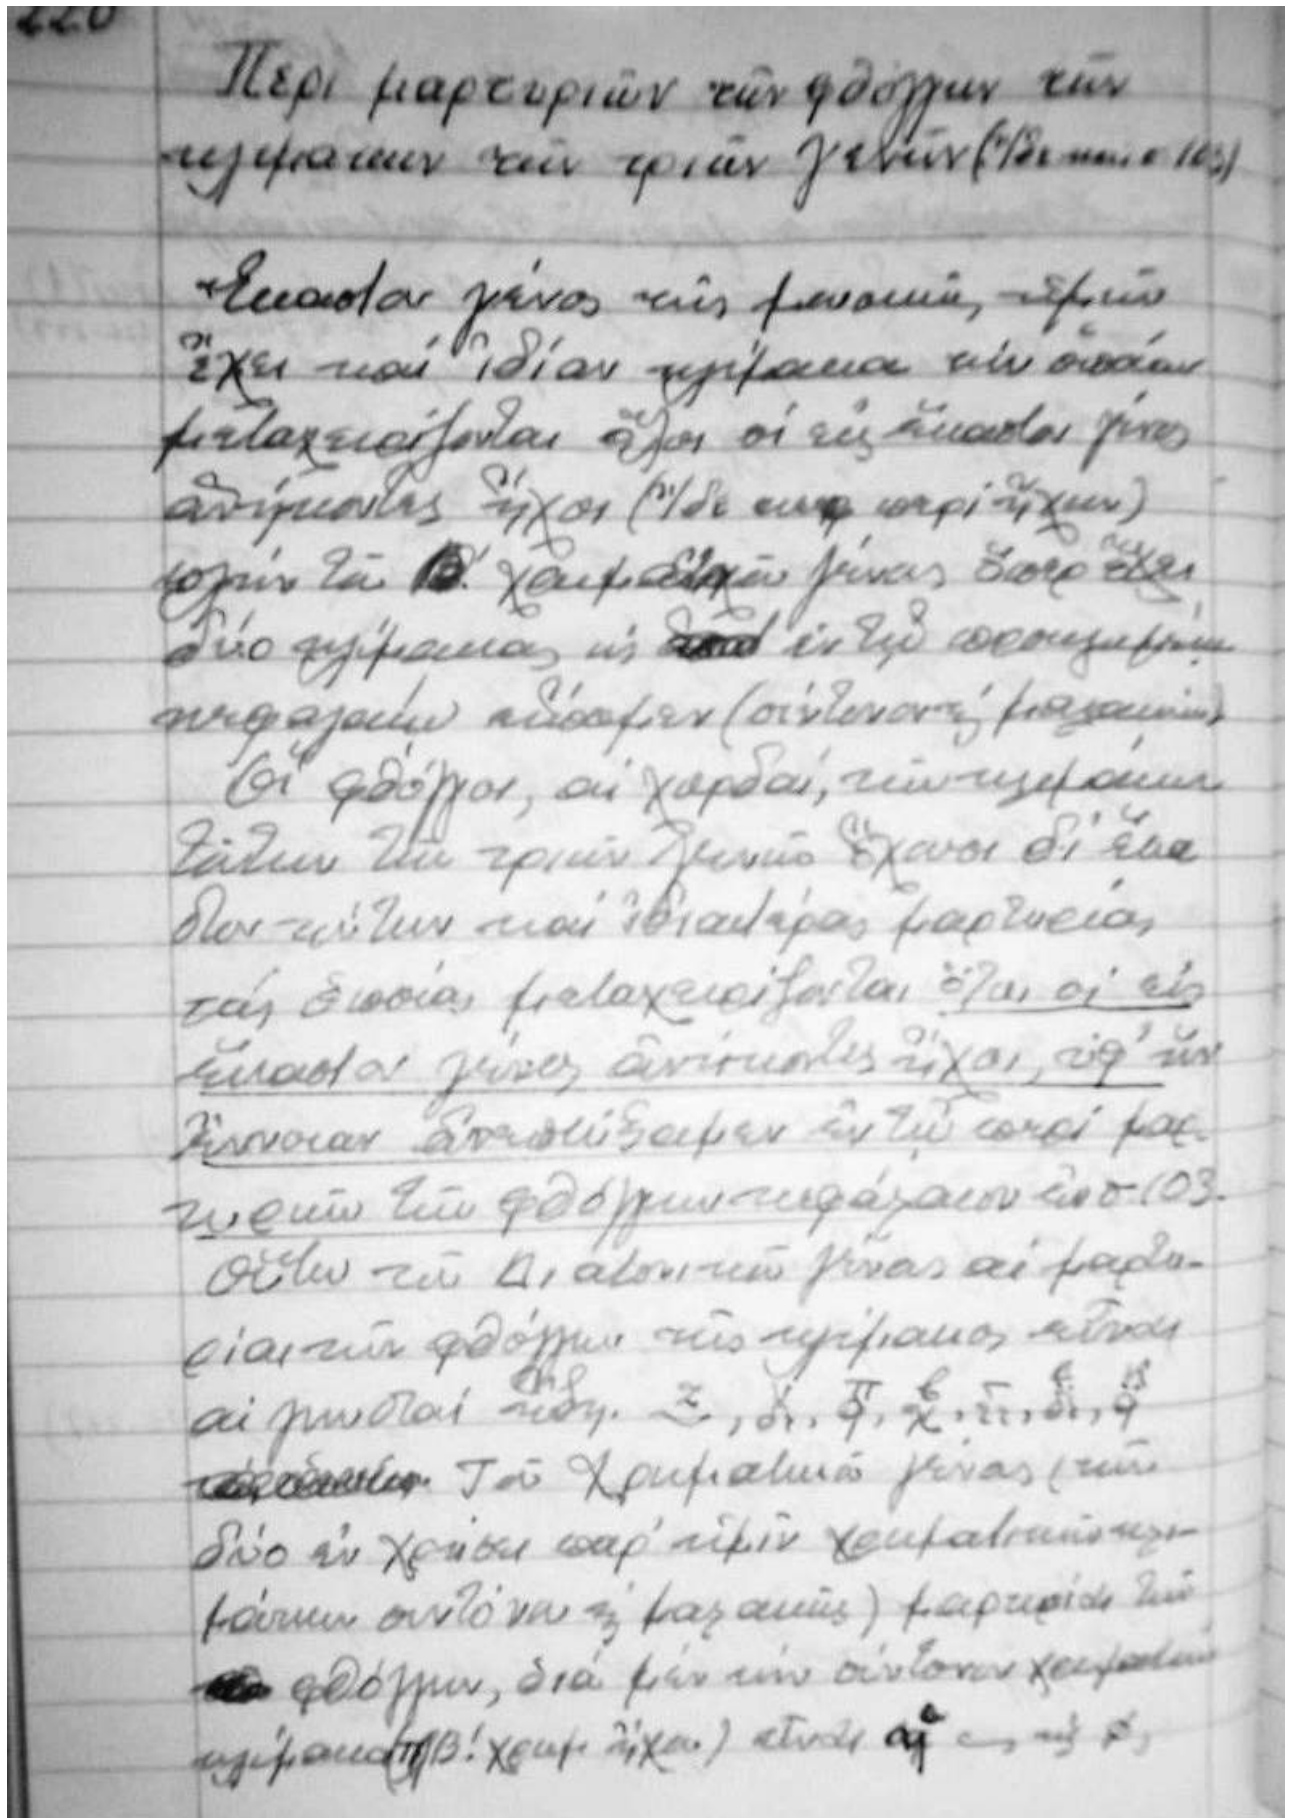 Περί μαρτυριῶν τῶν φθόγγων τῶν
κλιμάκων τῶν τριῶν γενῶν (Ἴδε και σ 103)
Ἕκαστον γένος τῆς μουσικῆς ἡμῶν
ἔχει καί ἰδίαν κλίμακα τήν ὁποίαν
μεταχειρίζονται ὅλοι οἱ εἰς ἕκαστον γένος
ἀνήκοντες ἦχοι (Ἴδε περί ἤχων)
πλήν τοῦ Β΄. χρωματικοῦ γένους ὅπερ ἔχει
δύο κλίμακας ὡς ἐν τῷ προηγουμένῳ
κεφαλαίῳ εἴπομεν (σύντονον ϗ μαλακήν)
Οἱ φθόγγοι, αἱ χορδαί, τῶν κλιμάκων
τούτων τῶν τριῶν γενῶν ἔχουσι δι' ἕκα
στον τούτων καί ἰδιαιτέρας μαρτυρίας
τάς ὁποίας μεταχειρίζονται ὅλοι οἱ εἰς
ἕκαστον γένος ἀνήκοντες ἦχοι, ὑφ' ἥν
ἔννοιαν ἀνεπτύξαμεν ἐν τῷ περί μαρ-
τυριῶν τῶν φθόγγων κεφάλαιον ἐν σ. 103.
Οὕτω τοῦ Διατονικοῦ γένους αἱ μαρτυ-
ρίαι τῶν φθόγγων τῆς κλίμακος εἶναι
αἱ γνωσταί
Τοῦ Χρωματικοῦ γένους (τῶν
δύο ἐν χρήσει παρ' ἡμῖν χρωματικῶν κλι-
μάκων συντόνου ϗ μαλακῆς) μαρτυρίαι τῶν
φθόγγων, διά μέν τήν σύντονον χρωματικήν
κλίμακα Β΄. χρωμ. ἤχου) εἶναι